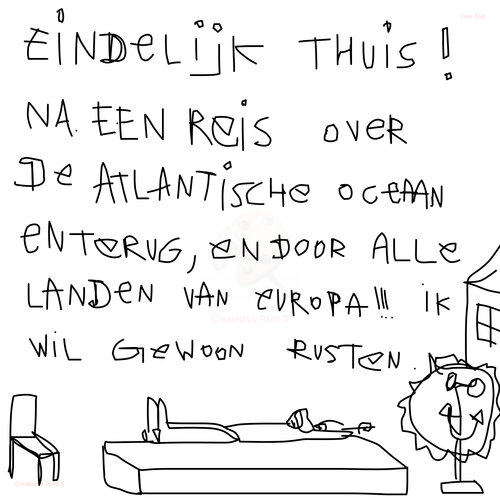 EiNDELijK THUiS!
NA. EEN REiS OVER
DE ATLANTiSCHE OCEAAN
ENTERUG, ENDOOR ALLE
LANDEN VAN EUROPA!!! iK
WiL GEWOON RUSTEN.